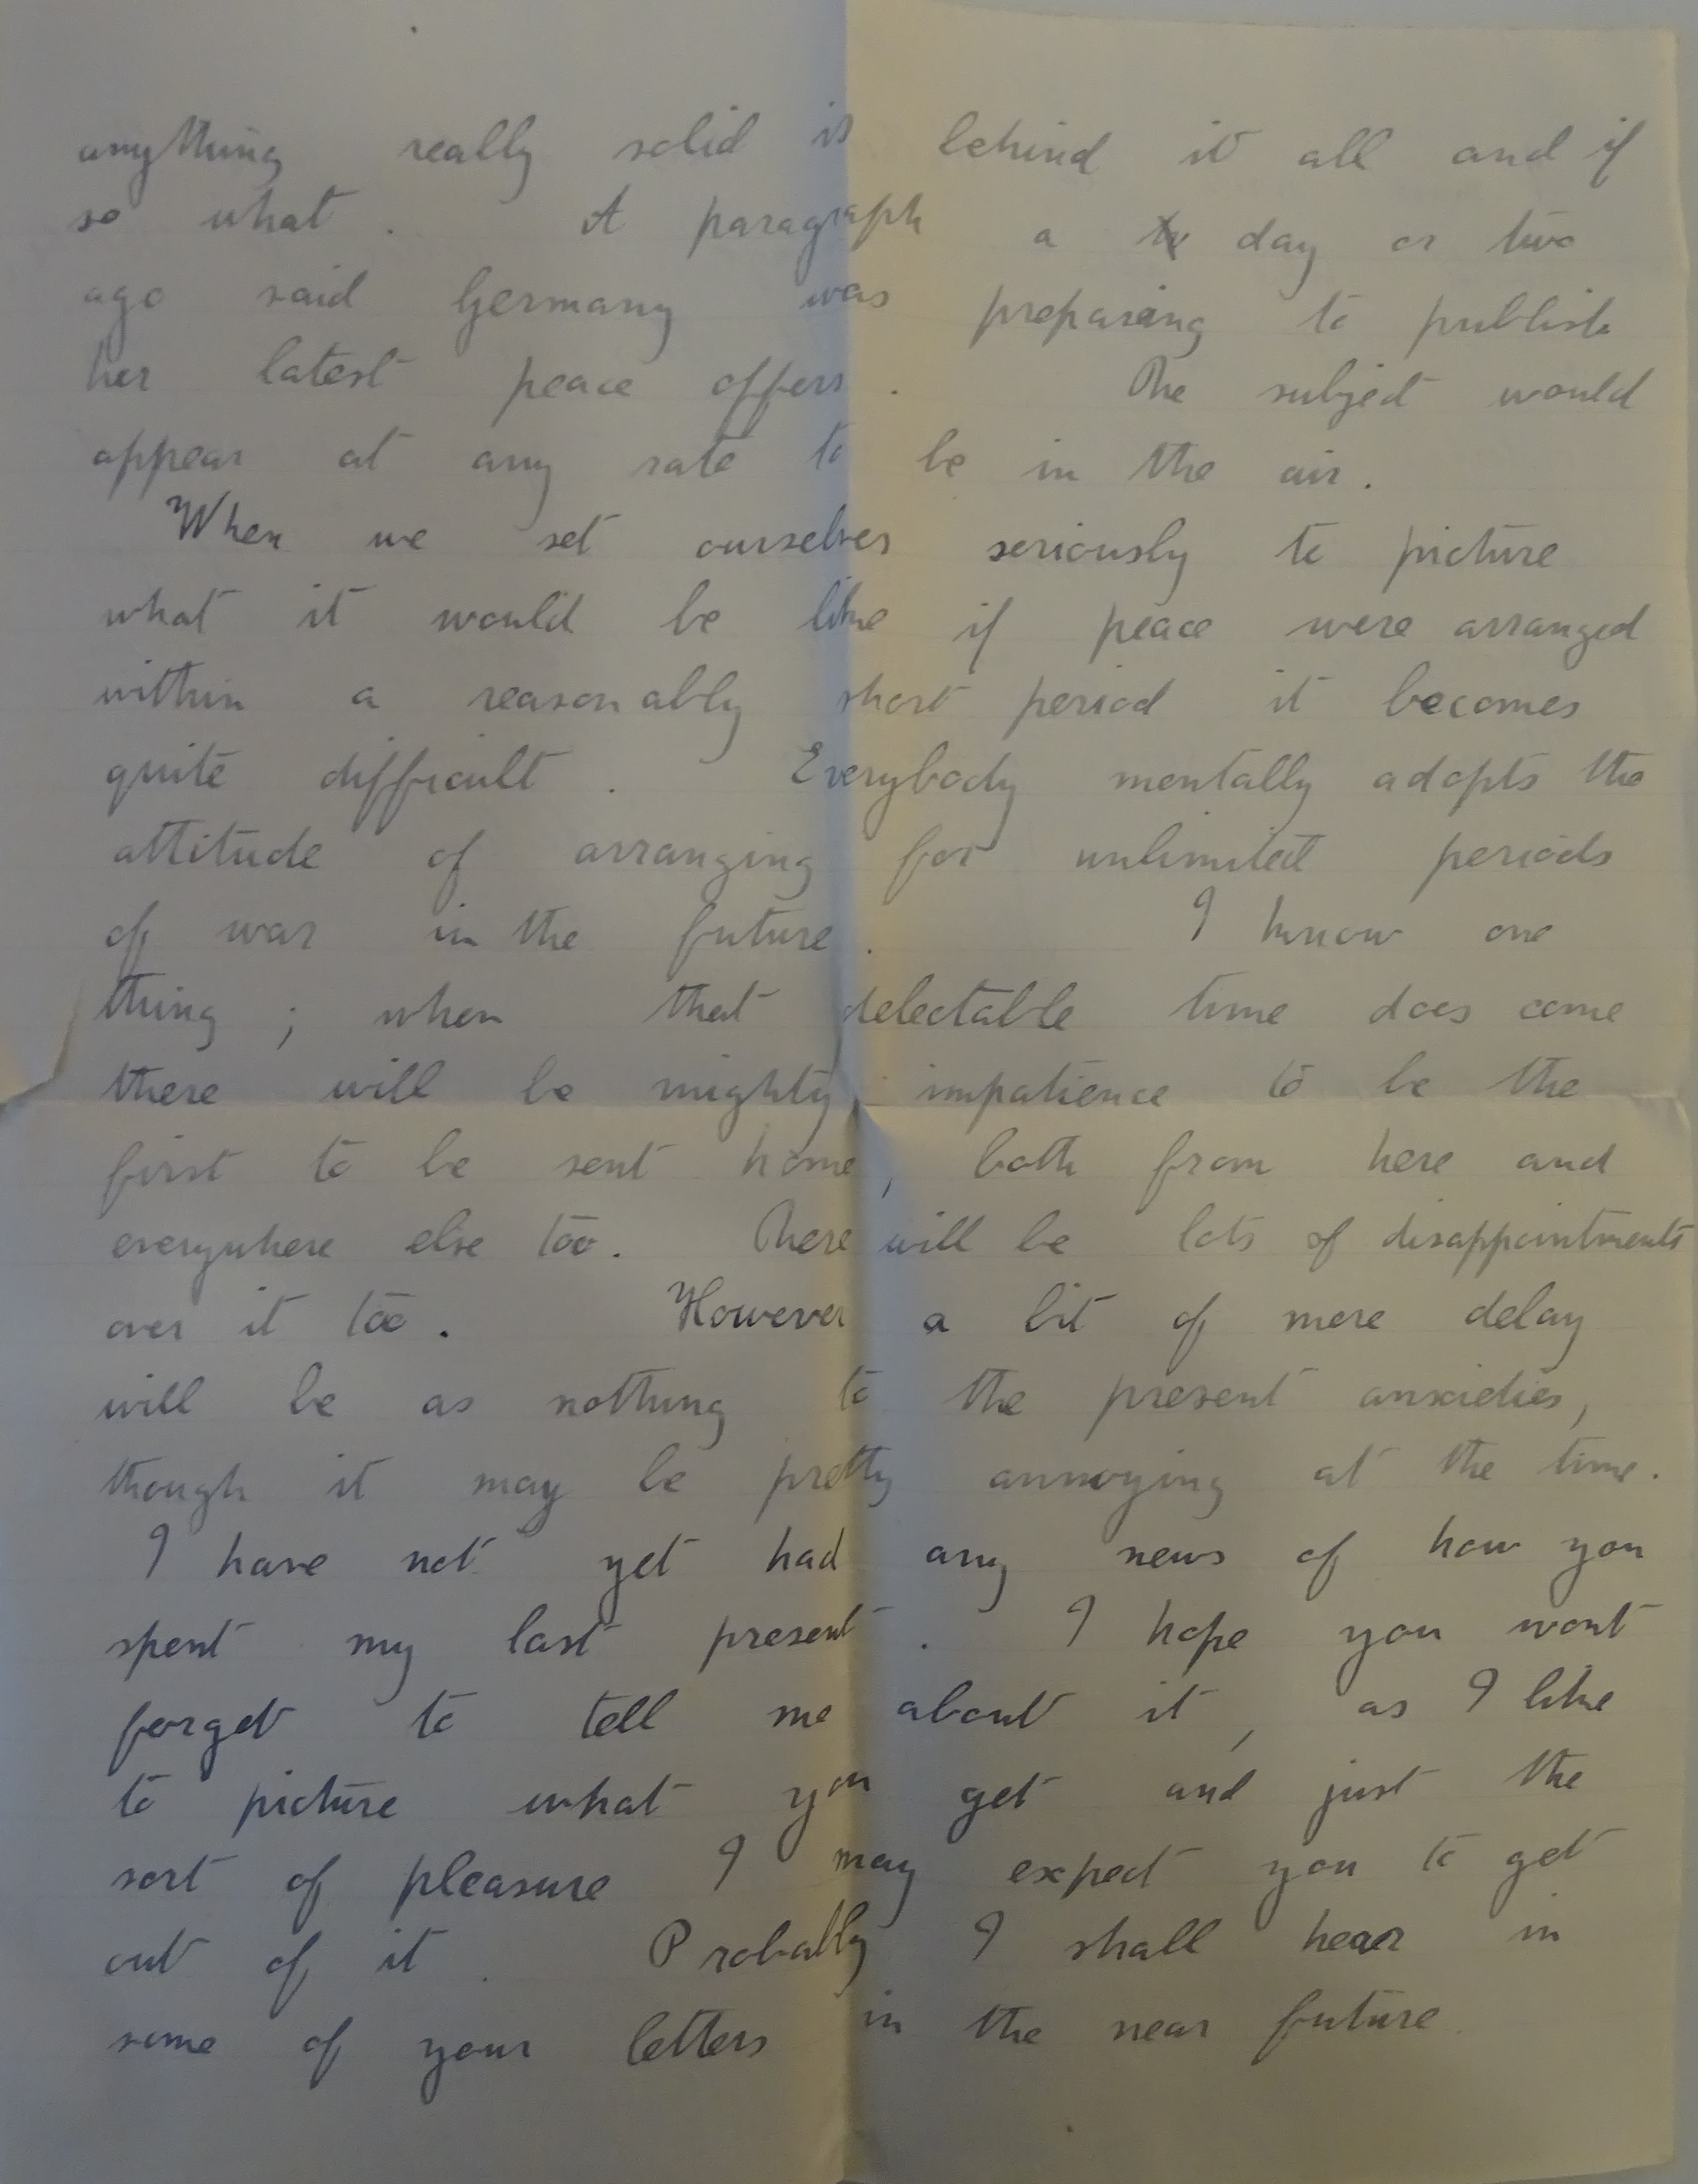 anything really solid is behind it all and if
so what. A paragraph a day or two
ago said Germany was preparing to publish
her latest peace offers. The subject would
appear at any rate to be in the air.
When we set ourselves seriously to picture
what it would be like if peace were arranged
within a reasonably short period it becomes
quite difficult. Everybody mentally adopts the
attitude of arranging for unlimited periods
of war in the future. I know one
thing; when that delectable time does come
there will be mighty impatience to be the
first to be sent home, both from here and
everywhere else too. There will be lots of disappointments
over it too. However a bit of more delay
will be as nothing to the present anxieties,
though it may be pretty annoying at the time.
I have not yet had any news of how you
spent my last present. I hope you wont
forget to tell me about it, as I like
to picture what you get and just the
sort of pleasure I may expect you to get
out of it. Probably I shall hear in
some of your letters in the near future.